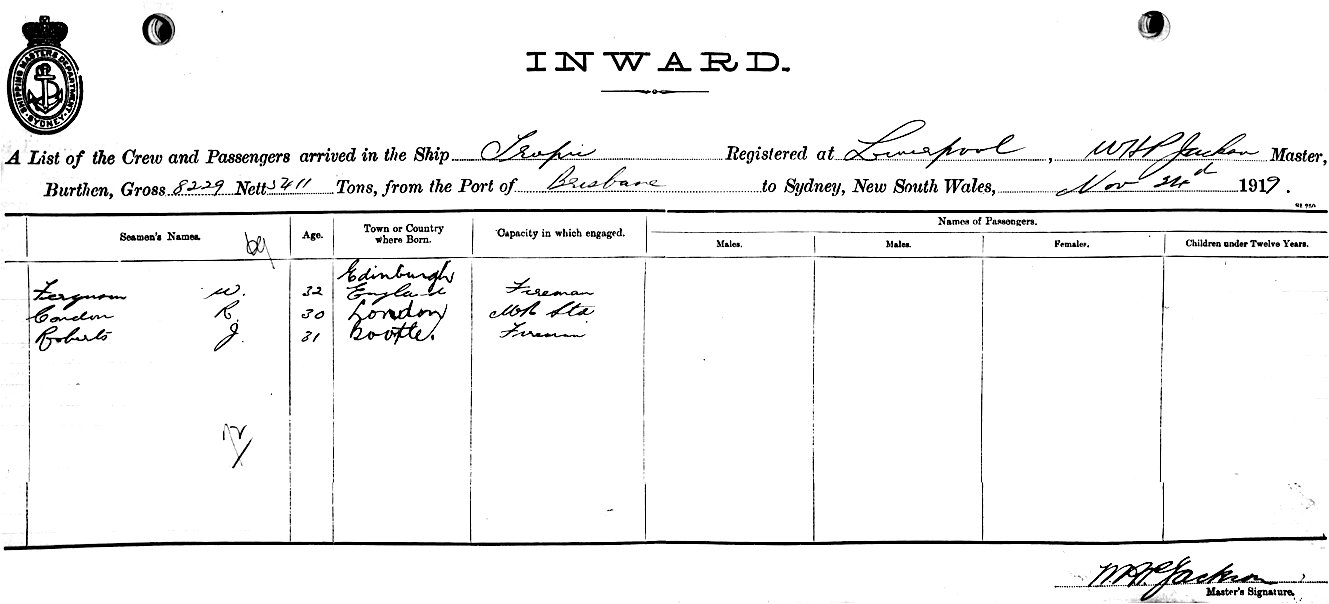 SHIPPING MASTER'S DEPARTMENT SYDNEY
INWARD.
A List of the Crew and Passengers arrived in the Ship Tropic Registered at Liverpool, WHP Jackson Master,
Burthen, Gross 8229 Nett 5411 Tons, from the Port of Brisbane to Sydney, New South Wales, Nov 1919.
Names of Passengers.
Seamen's Names. Age. Town or Country where Born. Capacity in which engaged. Males. Males. Females. Children under Twelve Years.
Edinburgh
Ferguson W. 32 England Fireman
Condon R. 30 London
Roberts J. 31 Bootle. Fireman
WHP Jackson
Master's Signature.